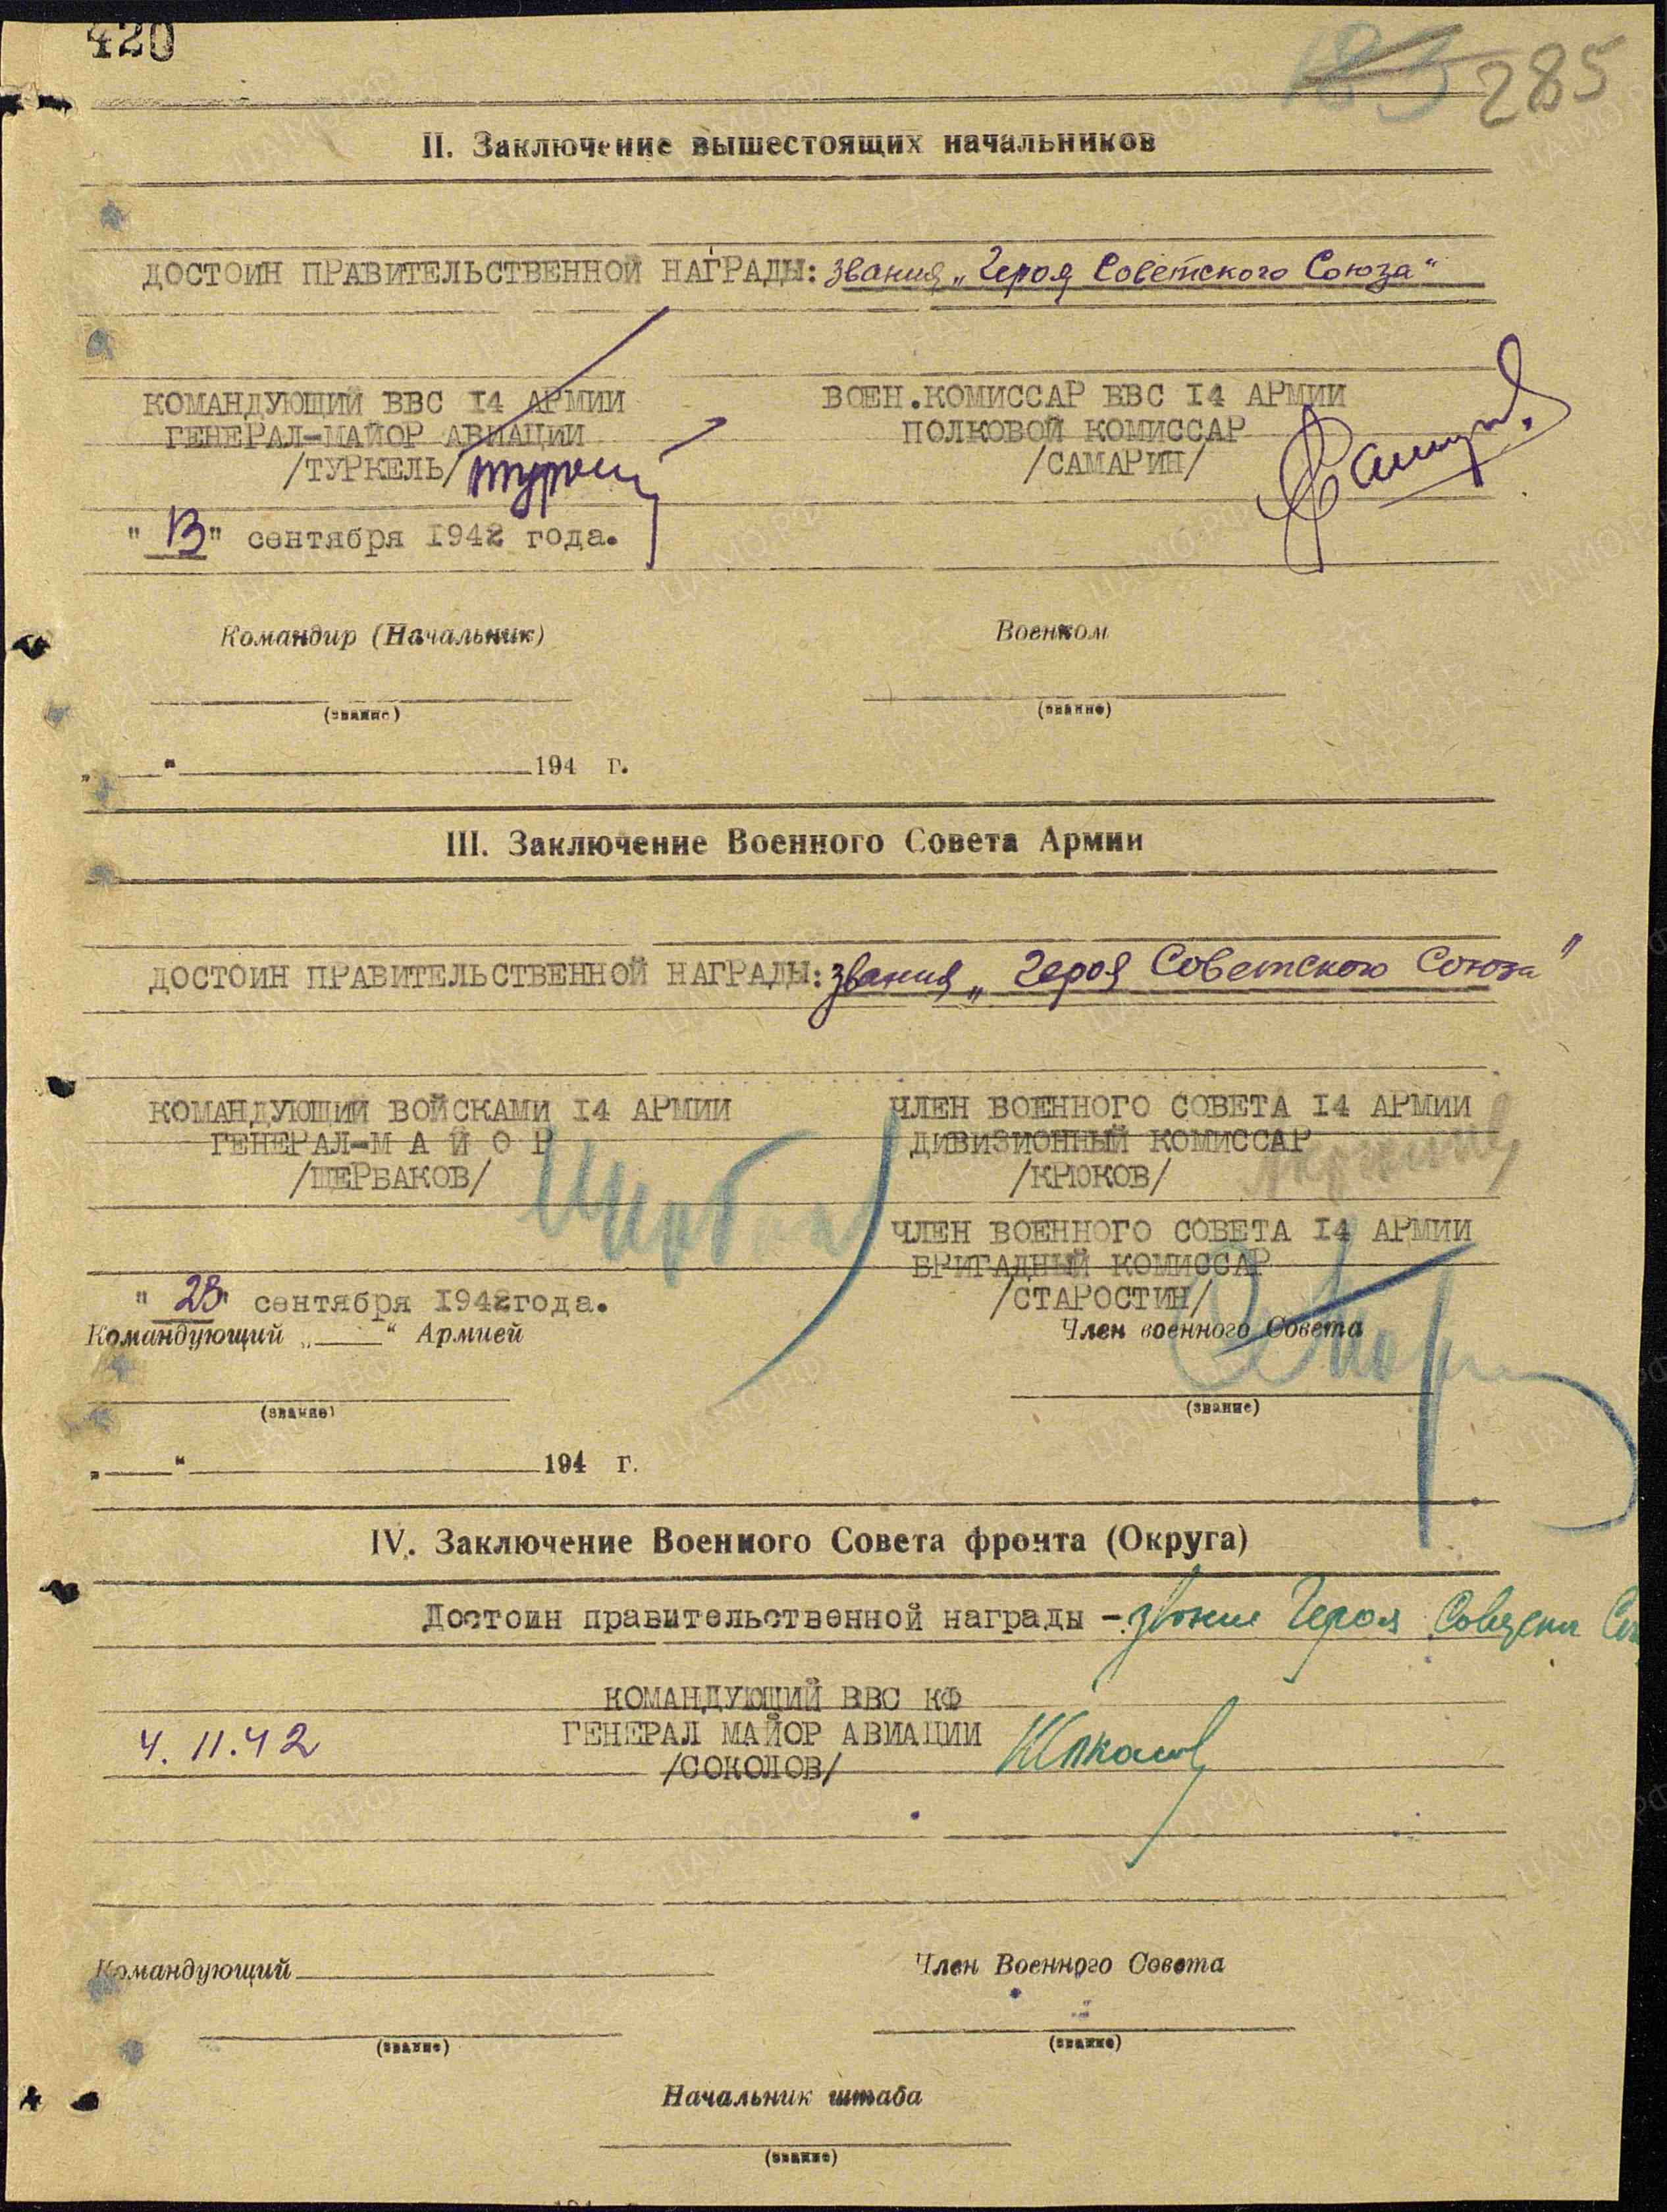 420
183 285
II. Заключение вышестоящих начальников
ДОСТОИН ПРАВИТЕЛЬСТВЕННОЙ НАГРАДЫ: звания „Героя Советского Союза"
КОМАНДУЮЩИЙ ВВС I4 АРМИИ
ГЕНЕРАЛ-МАЙОР АВИАЦИИ
/ТУРКЕЛЬ/
ВОЕН.КОМИССАР ВВС I4 АРМИИ
ПОЛКОВОЙ КОМИССАР
/САМАРИН/
"13" сентября 1942 года.
Командир (Начальник)
Военком
(звание)
(звание)
„ " 194 г.
III. Заключение Военного Совета Армии
ДОСТОИН ПРАВИТЕЛЬСТВЕННОЙ НАГРАДЫ: звания „Героя Советского Союза"
КОМАНДУЮЩИЙ ВОЙСКАМИ I4 АРМИИ
ГЕНЕРАЛ-М А Й О Р
/ЩЕРБАКОВ/
ЧЛЕН ВОЕННОГО СОВЕТА I4 АРМИИ
ДИВИЗИОННЫЙ КОМИССАР
/КРЮКОВ/
ЧЛЕН ВОЕННОГО СОВЕТА I4 АРМИИ
БРИГАДНЫЙ КОМИССАР
/СТАРОСТИН/
"23" сентября 1942года.
Командующий „ " Армией
Член военного Совета
(звание)
(звание)
„ " 194 г.
IV. Заключение Военного Совета фронта (Округа)
Достоин правительственной награды - звание Героя
КОМАНДУЮЩИЙ ВВС КФ
ГЕНЕРАЛ МАЙОР АВИАЦИИ
/СОКОЛОВ/
4.11.42
Командующий
Член Военного Совета
(звание)
(звание)
Начальник штаба
(звание)